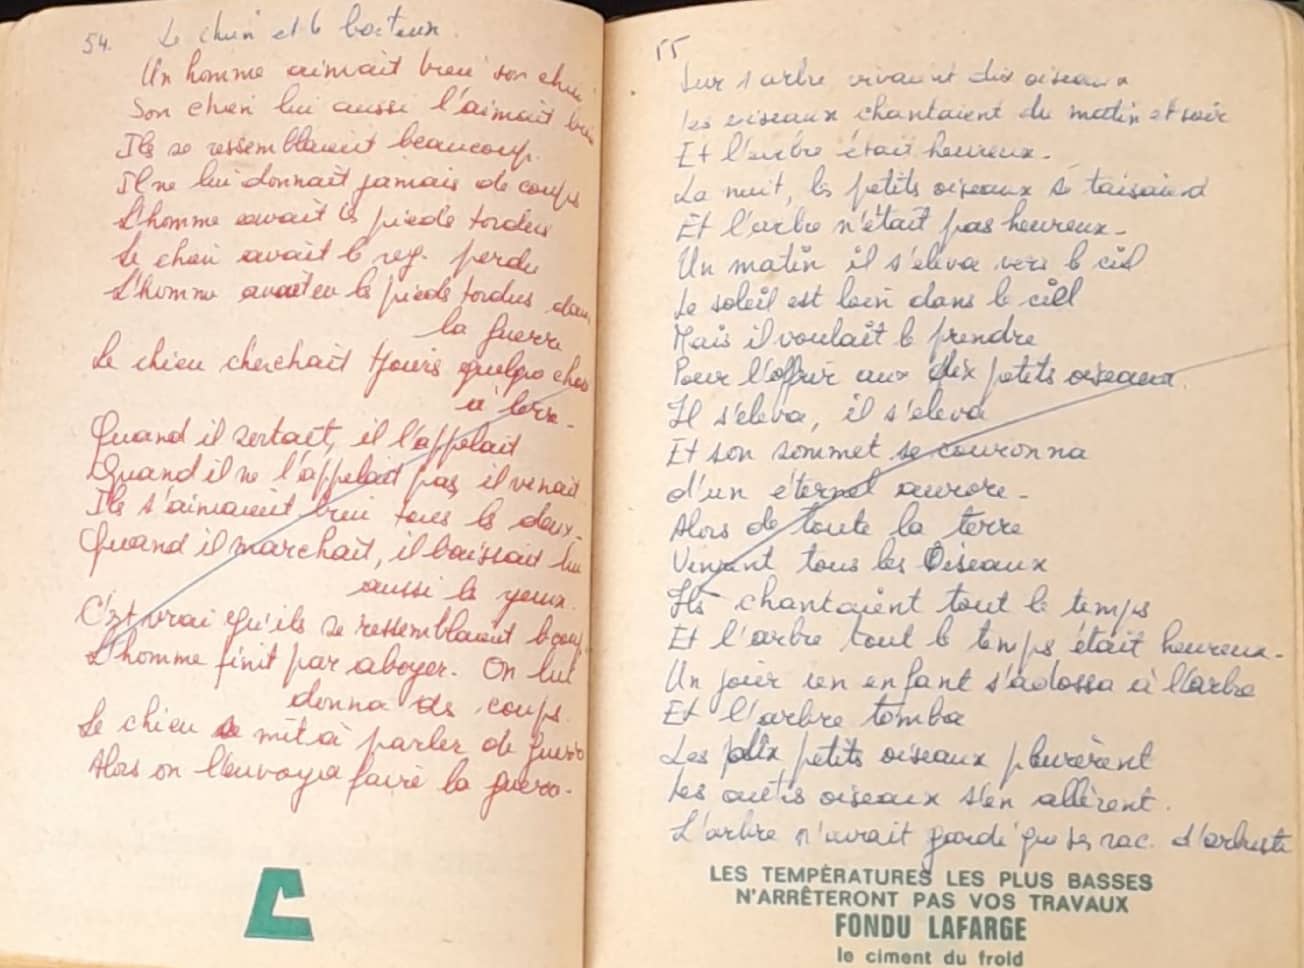 54. Le chien et le boiteux.
Un homme aimait bien son chien
Son chien lui aussi l'aimait bien
Ils se ressemblaient beaucoup.
Il ne lui donnait jamais de coups
L'homme avait les pieds tordus
Le chien avait le reg. perdu
L'homme avait eu les pieds tordus dans
la guerre
Le chien cherchait tjours quelque chose
à terre.
Quand il sortait, il l'appelait
Quand il ne l'appelait pas, il venait
Ils s'aimaient bien tous les deux.
Quand il marchait, il baissait lui
aussi les yeux.
C'est vrai qu'ils se ressemblaient bcoup
L'homme finit par aboyer. On lui
donna des coups.
Le chien se mit à parler de guerre
Alors on l'envoya faire la guerre.
C
55
Sur 1 arbre vivaient dix oiseaux
Les oiseaux chantaient du matin et soir
Et l'arbre était heureux.
La nuit, les petits oiseaux se taisaient
Et l'arbre n'était pas heureux.
Un matin il s'éleva vers le ciel
Le soleil est loin dans le ciel
Mais il voulait le prendre
Pour l'offrir aux dix petits oiseaux.
Il s'eleva, il s'eleva
Et son sommet se couronna
d'un éternel aurore.
Alors de toute la terre
Vinrent tous les Oiseaux
Ils chantaient tout le temps
Et l'arbre tout le temps était heureux.
Un jour un enfant s'adossa à l'arbre
Et l'arbre tomba
Les dix petits oiseaux pleurèrent
Les autres oiseaux s'en allèrent.
L'arbre n'avait gardé que ses rac. d'arbuste
LES TEMPÉRATURES LES PLUS BASSES
N'ARRÊTERONT PAS VOS TRAVAUX
FONDU LAFARGE
le ciment du froid